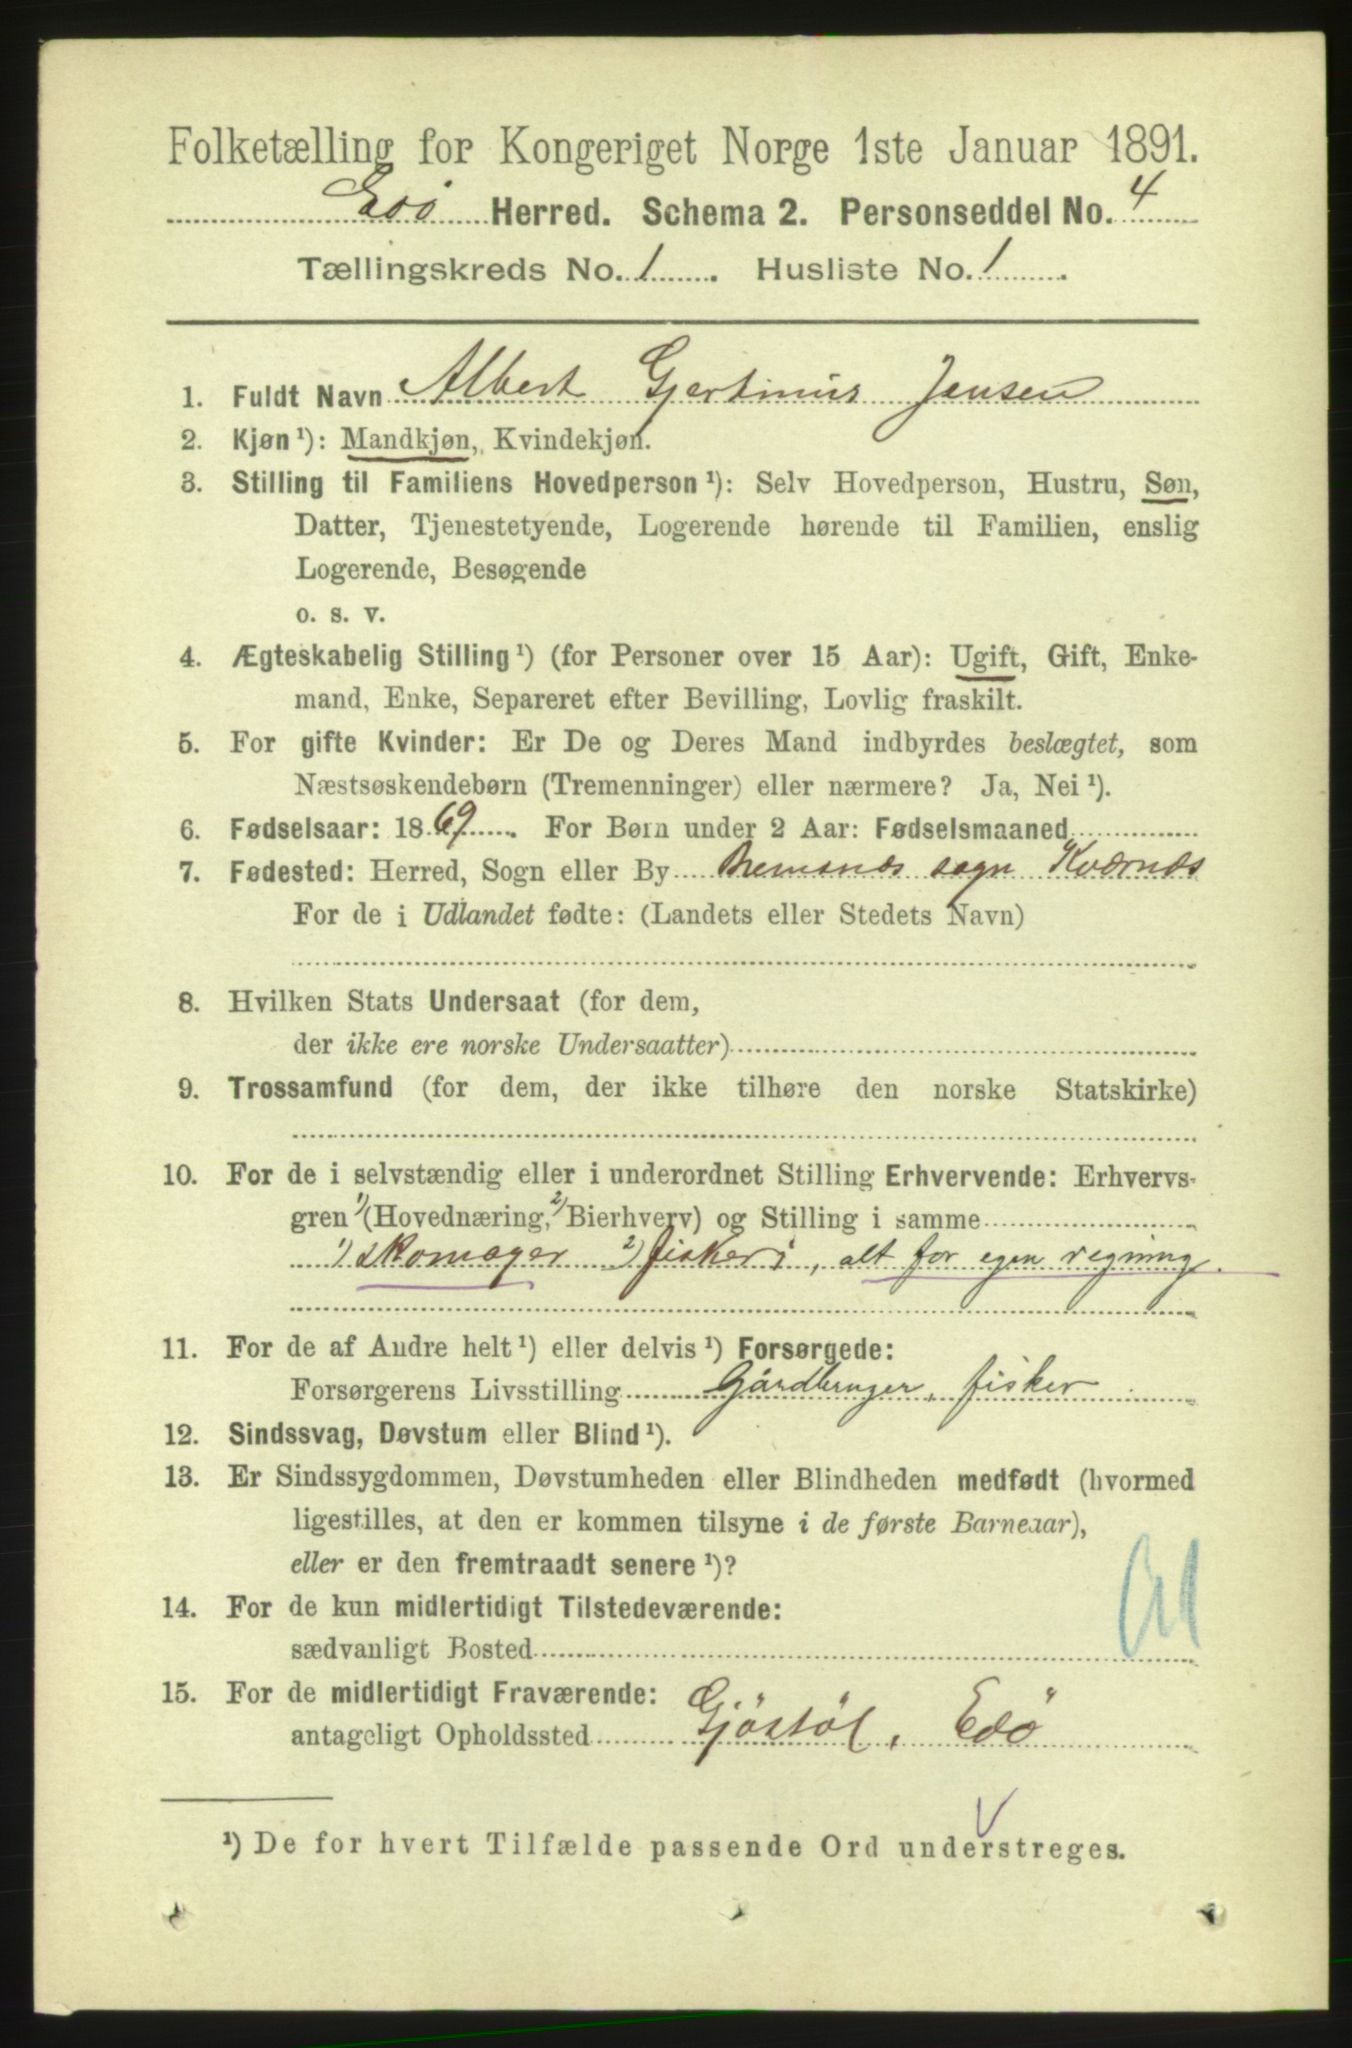 Folketælling for Kongeriget Norge 1ste Januar 1891.
Edö Herred. Schema 2. Personseddel No. 4
Tællingskreds No. 1. Husliste No. 1.
1. Fuldt Navn Albert Gjertinius Jensen
2. Kjøn ¹): Mandkjøn, Kvindekjøn.
3. Stilling til Familiens Hovedperson ¹): Selv Hovedperson, Hustru, Søn,
Datter, Tjenestetyende, Logerende hørende til Familien, enslig
Logerende, Besøgende
o. s. v.
4. Ægteskabelig Stilling ¹) (for Personer over 15 Aar): Ugift, Gift, Enke-
mand, Enke, Separeret efter Bevilling, Lovlig fraskilt.
5. For gifte Kvinder: Er De og Deres Mand indbyrdes beslægtet, som
Næstsøskendebørn (Tremenninger) eller nærmere? Ja, Nei ¹).
6. Fødselsaar: 1869. For Børn under 2 Aar: Fødselsmaaned
7. Fødested: Herred, Sogn eller By Bremsnæs sogn Kværnæs
For de i Udlandet fødte: (Landets eller Stedets Navn)
8. Hvilken Stats Undersaat (for dem,
der ikke ere norske Undersaatter)
9. Trossamfund (for dem, der ikke tilhøre den norske Statskirke)
10. For de i selvstændig eller i underordnet Stilling Erhvervende: Erhvervs-
gren ¹) (Hovednæring, ²) Bierhverv) og Stilling i samme
¹) skomager ²) fiskeri, alt for egen regning.
11. For de af Andre helt ¹) eller delvis ¹) Forsørgede:
Forsørgerens Livsstilling Gårdbruger, fisker
12. Sindssvag, Døvstum eller Blind ¹).
13. Er Sindssygdommen, Døvstumheden eller Blindheden medfødt (hvormed
ligestilles, at den er kommen tilsyne i de første Barneaar),
eller er den fremtraadt senere ¹)?
14. For de kun midlertidigt Tilstedeværende:
sædvanligt Bosted
15. For de midlertidigt Fraværende:
antageligt Opholdssted Gjöstöl, Edö
¹) De for hvert Tilfælde passende Ord understreges.